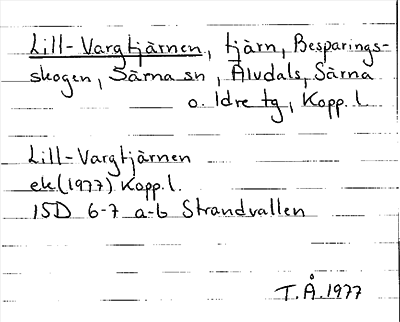 Lill-Vargtjärnen, tjärn, Besparings-
skogen, Särna sn, Älvdals, Särna
o. Idre tg, Kopp. l.
Lill-Vargtjärnen
ek. (1977) Kopp. l.
15D 6-7 a-b Strandvallen
T.Å. 1977